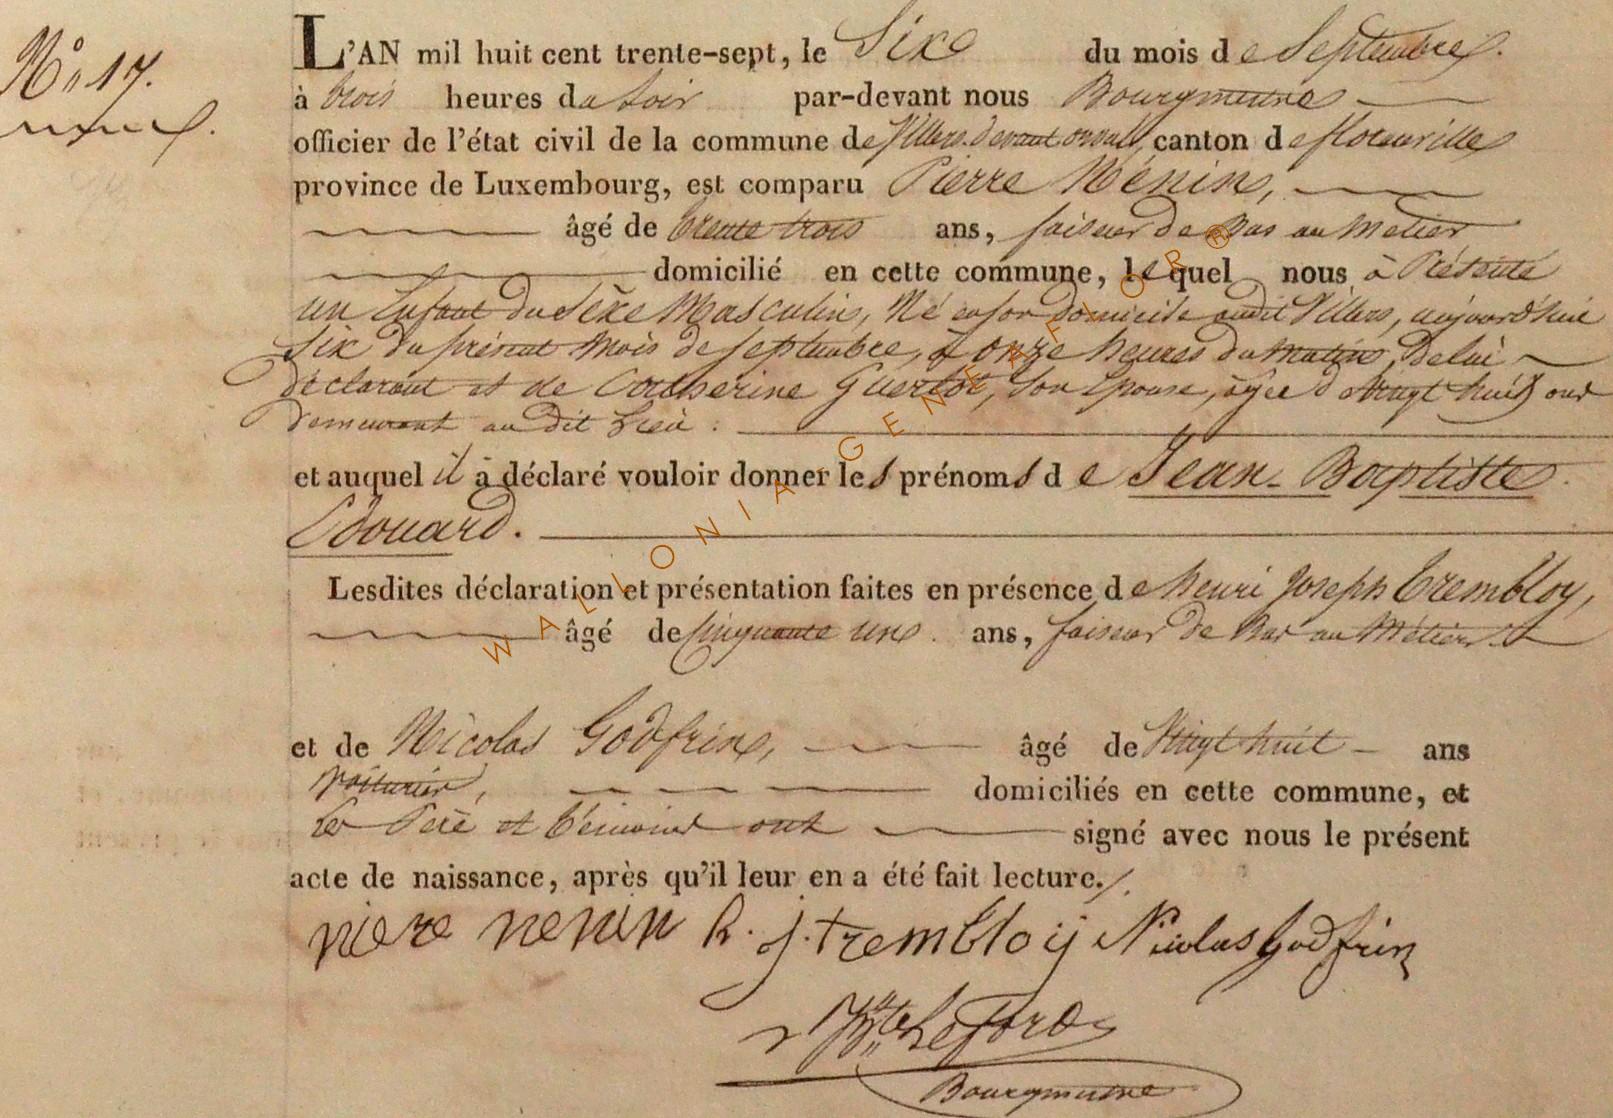 N.° 17.
L'AN mil huit cent trente-sept, le Six du mois de Septembre.
à trois heures du soir par-devant nous Bourgmestre
officier de l'état civil de la commune de Villers devant orval, canton de florenville
province de Luxembourg, est comparu Pierre Nénin,
âgé de trente trois ans, faiseur de Bas au Métier
domicilié en cette commune, lequel nous à Présenté
un Enfant du Sèxe Masculin, Né en son domicile audit Villers, aujourd'huie
Six du présent Mois de septembre, à onze heures du matin, de lui
déclarant et de Catherine Guerlot, son Epouse, agée de vingt huit ans
demeurant au dit Lieu :
et auquel il à déclaré vouloir donner les prénoms de Jean-Baptiste
Edouard.
Lesdites déclaration et présentation faites en présence de henri Joseph trembloy,
âgé de Cinquante un ans, faiseur de Bas au Métier
et de Nicolas Godfrin, âgé de Vingt huit ans
voiturier, domiciliés en cette commune, et
les Père et témoins ont signé avec nous le présent
acte de naissance, après qu'il leur en a été fait lecture./.
piere nenin h. j. trembloij Nicolas godfrin
Bourgmestre
WALLONIA GENEAFLOR ®